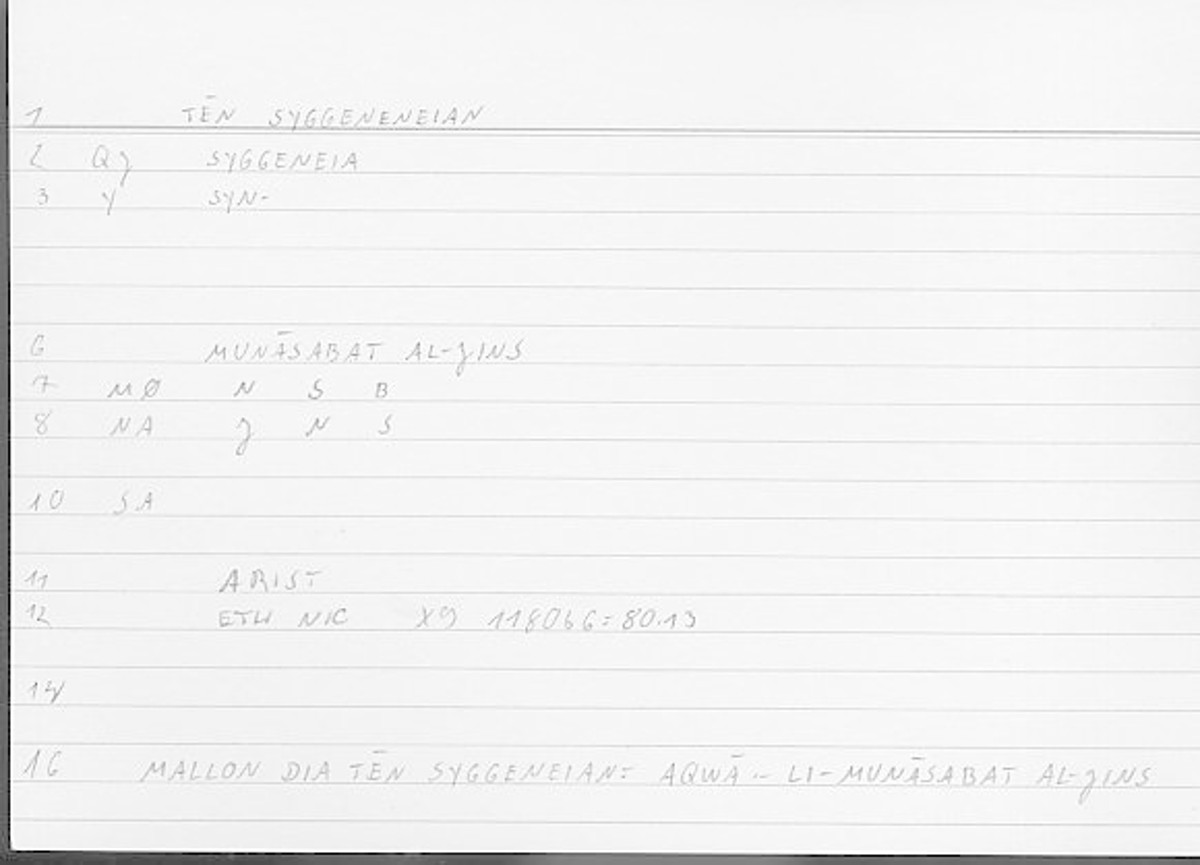 1 TĒN SYGGENENEIAN
2 Qȝ SYGGENEIA
3 Y SYN-
6 MUNĀSABAT AL-ȝINS
7 MØ N S B
8 NA ȝ N S
10 SA
11 ARIST
12 ETH NIC X9 1180b6=80.13
14
16 MALLON DIA TĒN SYGGENEIAN: AQWĀ .. LI-MUNĀSABAT AL-ȝINS